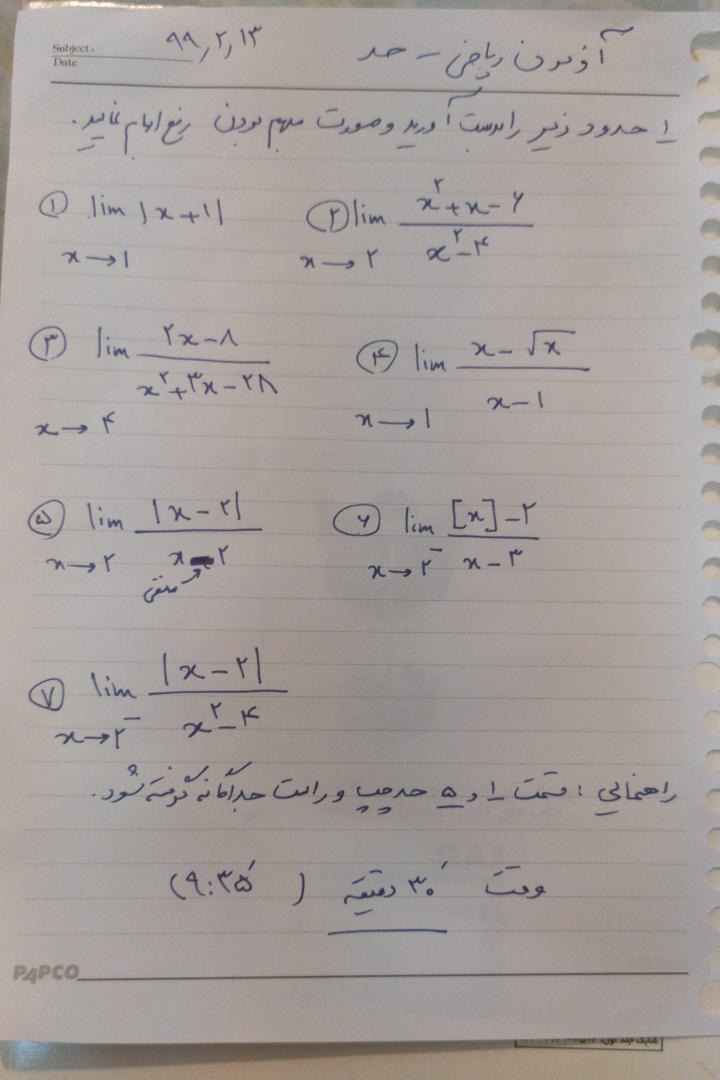 Subject: ۹۹,۲,۱۳ آزمون ریاضی - حد
Date
۱ حدود زیر را بدست آورید و صورت مبهم بودن رفع ابهام نمایید.
① lim |x+1| ② lim (x^۲+x-۶)/(x^۲-۴)
x→1 x→۲
③ lim (۲x-۸)/(x^۲+۳x-۲۸) ④ lim (x-√x)/(x-1)
x→۴ x→1
⑤ lim |x-۲|/(x-۲) ⑥ lim ([x]-۲)/(x-۳)
x→۲ منفی x→۲^-
⑦ lim |x-۲|/(x^۲-۴)
x→۲^-
راهنمایی : قسمت ۱ و ۵ حد چپ و راست جداگانه گرفته شود.
وقت ۳۰ دقیقه (۹:۳۵)
PAPCO